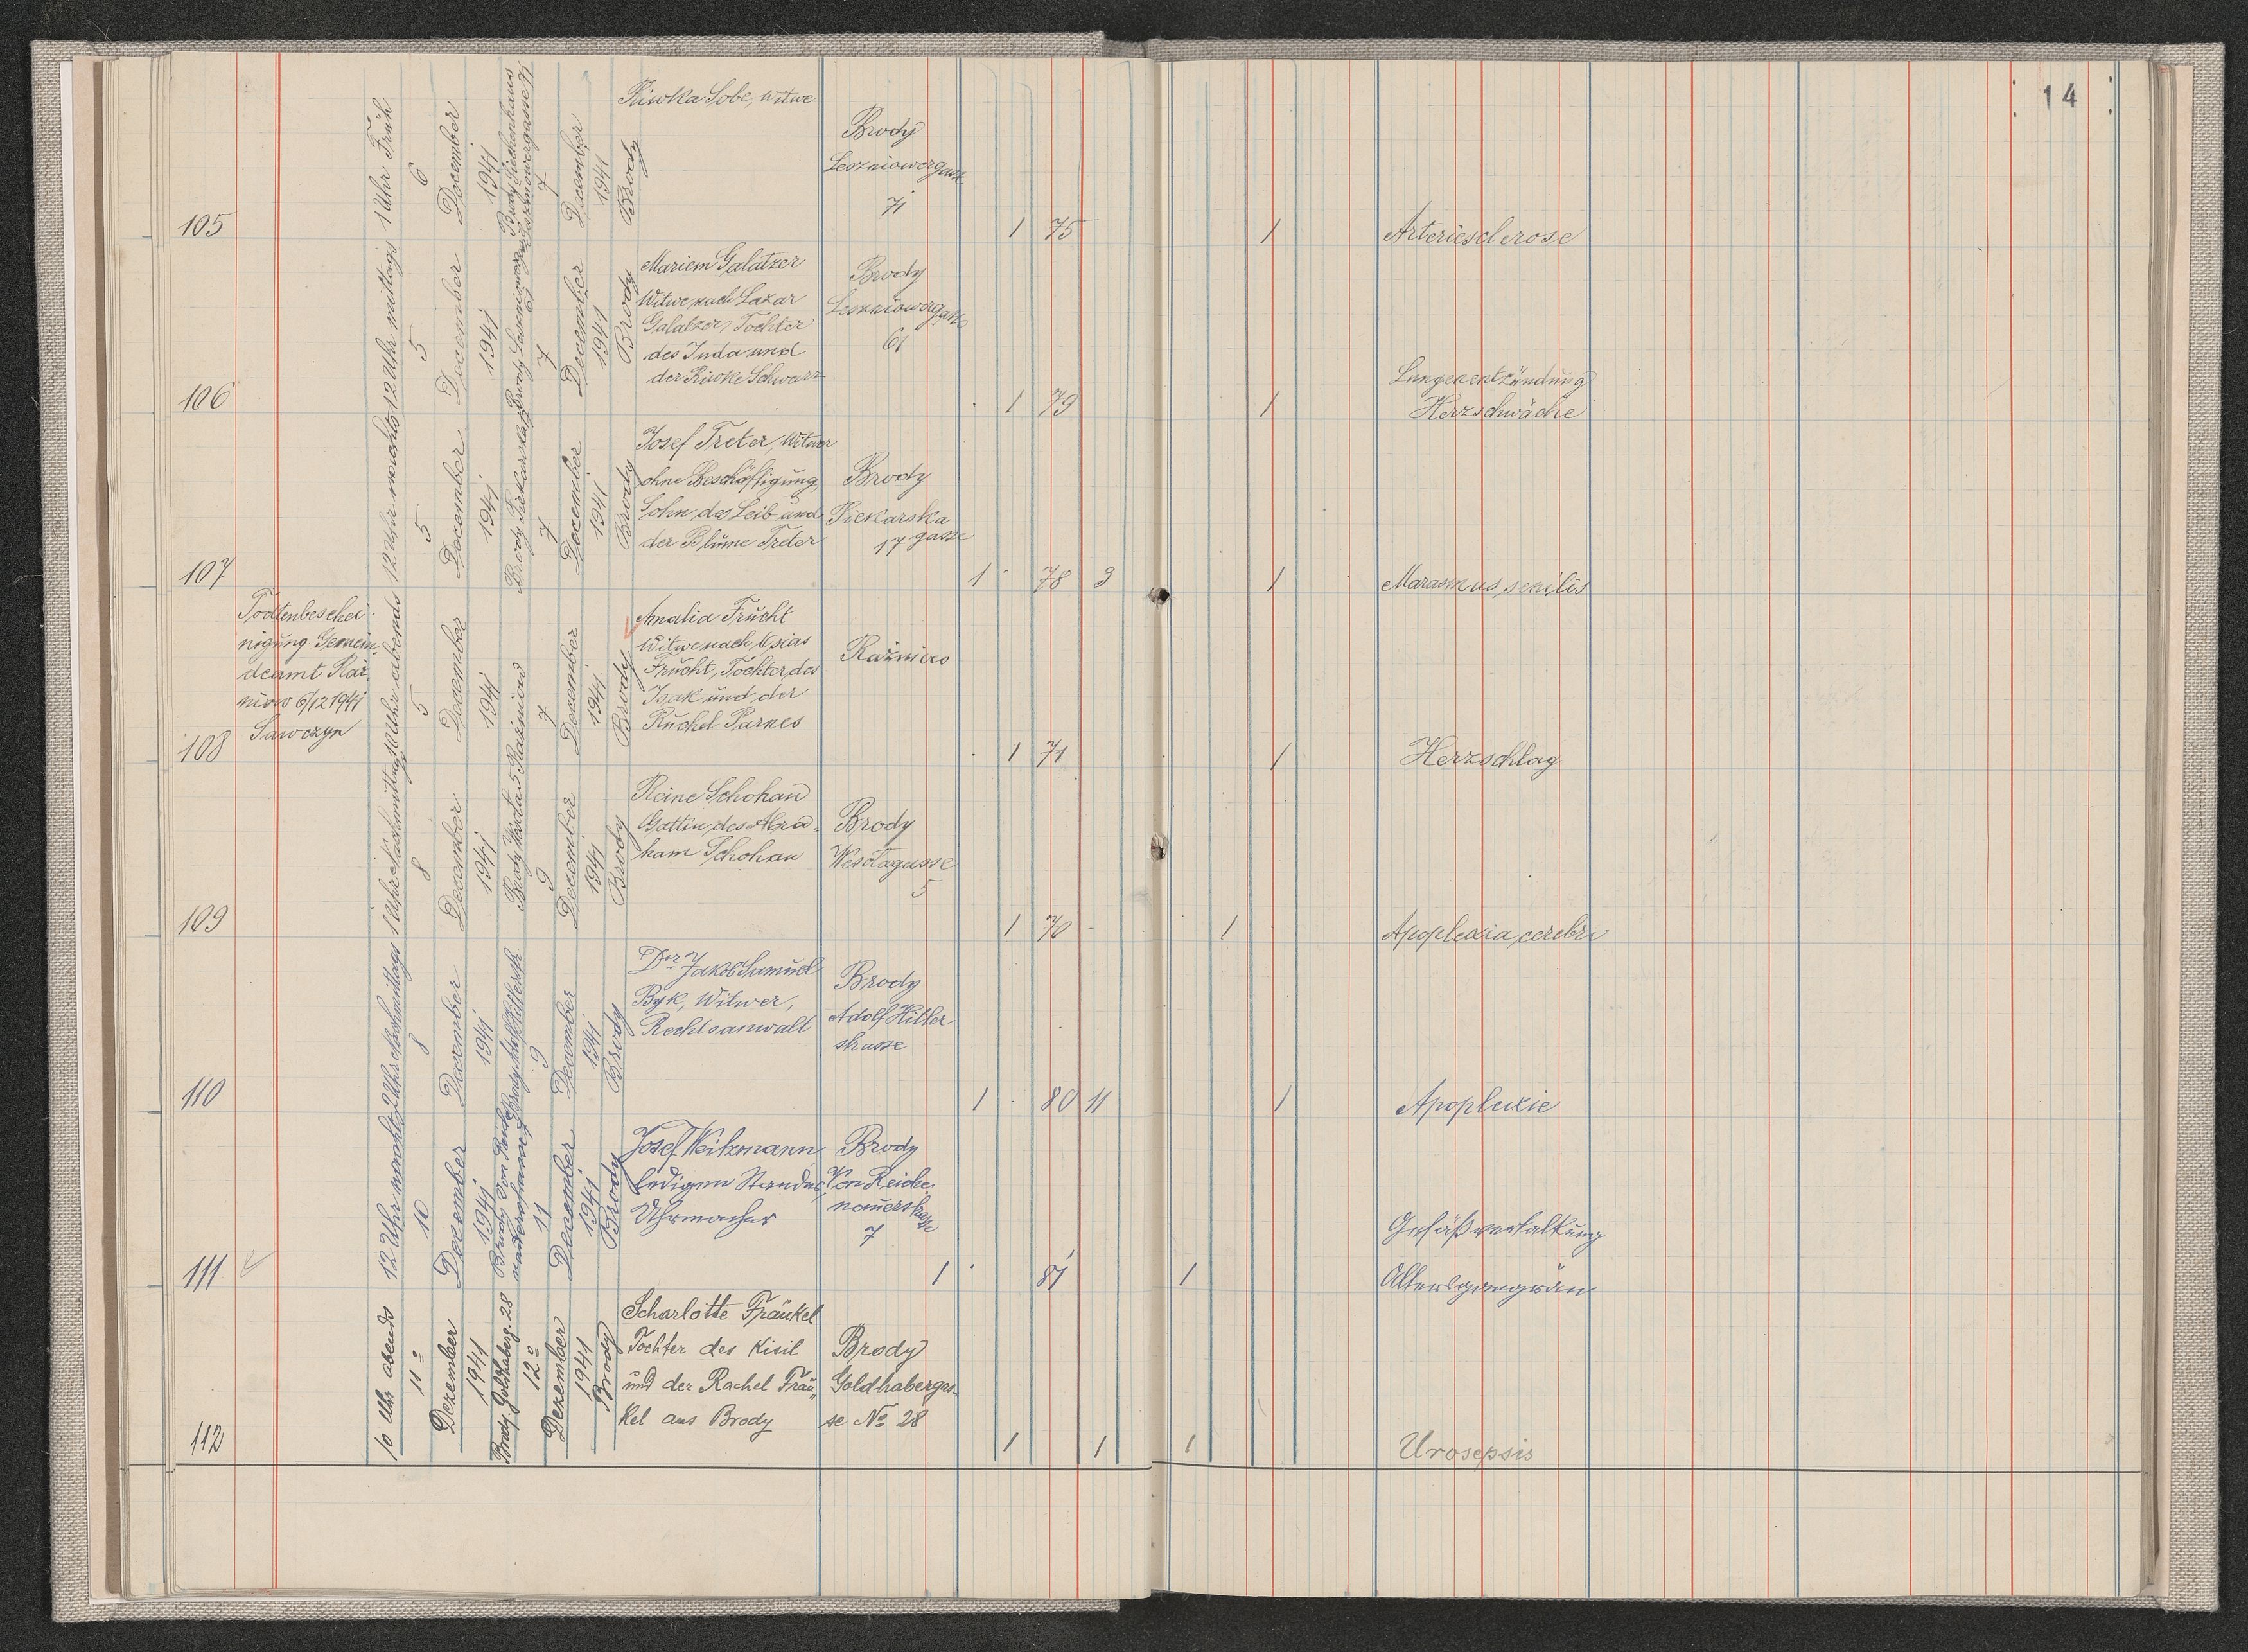 14
105
1 Uhr Früh
6
December
1941
Brody Siechenhaus
Leszniowergasse 71
7
December
1941
Brody
Riwka Sobe, Witwe
Brody
Leszniowergasse
71
1 75
1
Arteriesclerose
106
12 Uhr mittags
5
December
1941
Brody Leszniowergasse
61
7
December
1941
Brody
Mariem Galatzer
Witwe nach Lazar
Galatzer, Tochter
des Juda und
der Riwke Schwarz
Brody
Leszniowergasse
61
1 79
1
Lungenentzündung
Herzschwäche
107
12 Uhr nachts
5
December
1941
Brody
7
December
1941
Brody
Josef Treter, Witwer
ohne Beschäftigung,
Sohn des Leib und
der Blume Treter
Brody
Piekarska
gasse
17
1 78 3
1
Marasmus senilis
108
Todtenbeschei-
nigung Gemein-
deamt Raż-
niów 6/12 1941
Sawczyn
Uhr abends
5
December
1941
Rażniow
7
December
1941
Brody
Amalia Frucht
Witwe nach Osias
Frucht, Tochter des
Isak und der
Ruchel Parnes
Rażniow
1 71
1
Herzschlag
109
1 Uhr Nachmittag
8
December
1941
Brody Wesola 5
9
December
1941
Brody
Reine Schohan
Gattin des Abra-
ham Schohan
Brody
Wesolagasse
5
1 70
1
Apoplexia cerebri
110
2 Uhr Nachmittags
8
December
1941
Brody, Adolf Hitlerstr
9
December
1941
Brody
Dor Jakob Samuel
Byk, Witwer,
Rechtsanwalt
Brody
Adolf Hitler-
strasse
1 80 11
1
Apoplexie
111
12 Uhr nachts
10
December
1941
Brody von
11
December
1941
Brody
Josef Weitzmann
ledigen Standes,
Uhrmacher
Brody
Von Reiche-
nauerstrasse
7
1 81
1
Gefäßverkalkung
Altersgangrän
112
10 Uhr abends
11
Dezember
1941
Brody Goldhaberg. 28
12
Dezember
1941
Brody
Scharlotte Fränkel
Tochter des Kisil
und der Rachel Frän-
kel aus Brody
Brody
Goldhabergas-
se No 28
1 1
1
Urosepsis